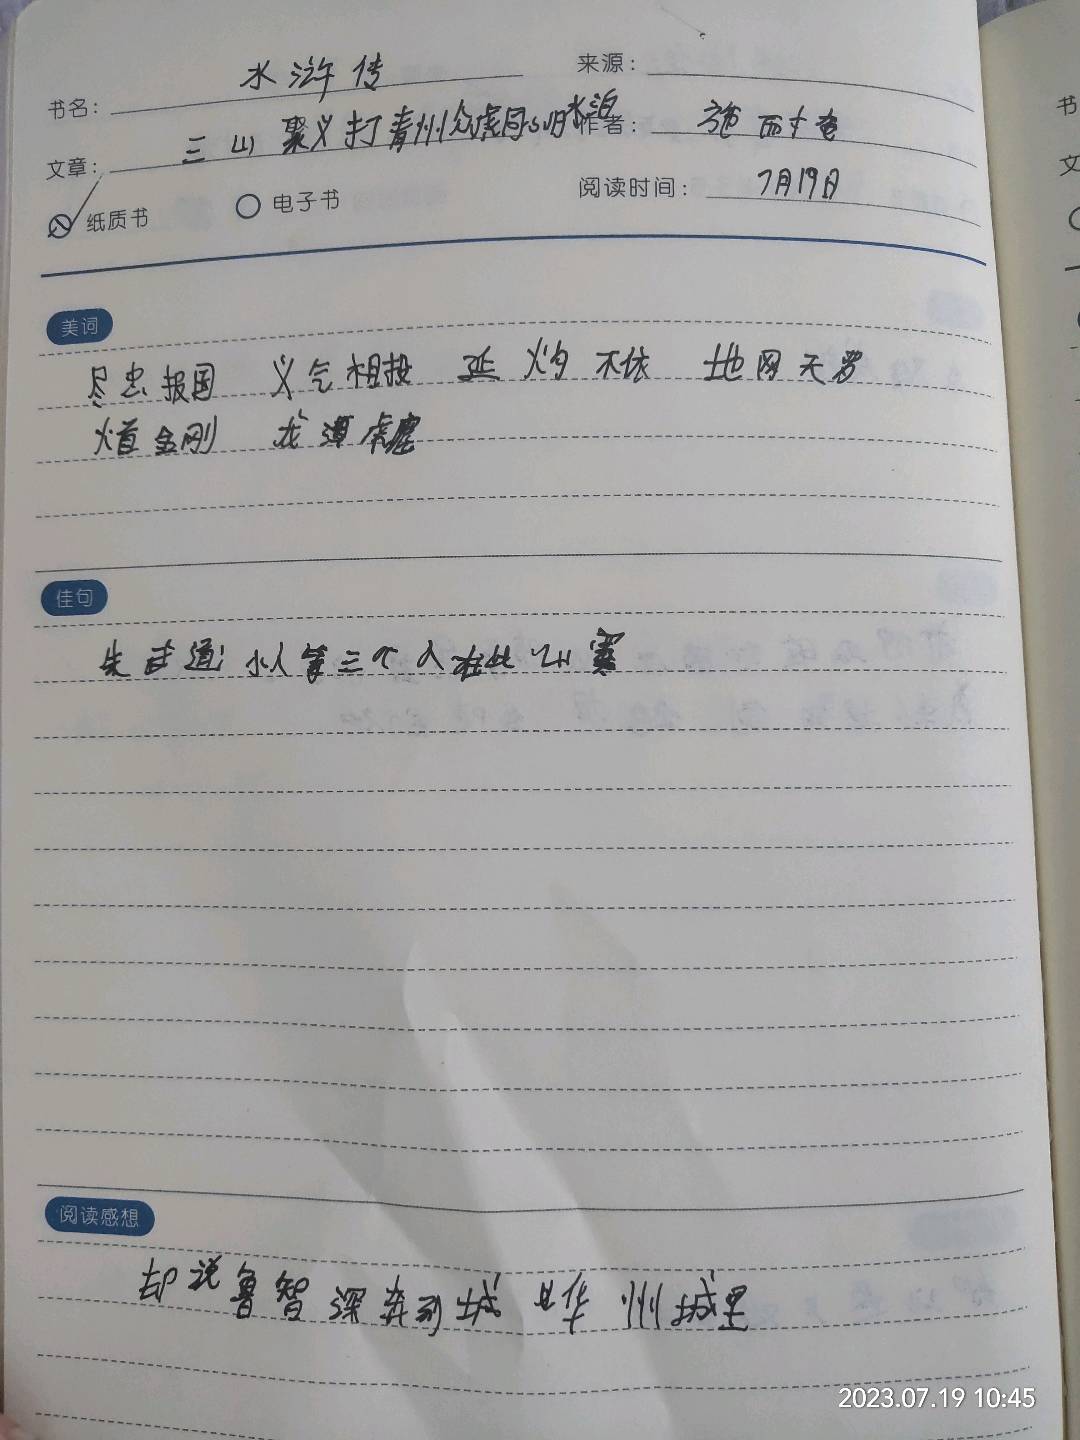 书名: 水浒传
来源:
文章: 三山聚义打青州众虎同心归水泊
作者: 施耐庵
纸质书 电子书
阅读时间: 7月19日
美词
尽忠报国 义气相投 延 不依 地网天罗
金刚 龙潭虎
佳句
朱武道:小人等三个人在此山寨
阅读感想
却说鲁智深奔到城 华州城里
2023.07.19 10:45
书
文